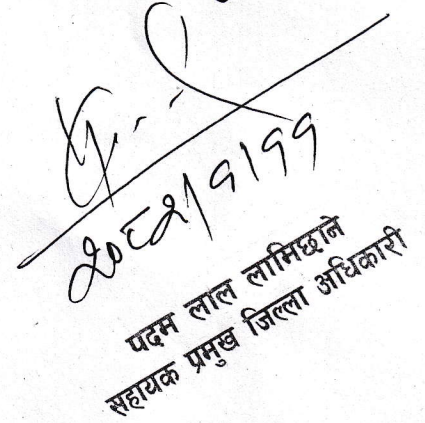 २०८२/१/११
पदम लाल लामिछाने
सहायक प्रमुख जिल्ला अधिकारी